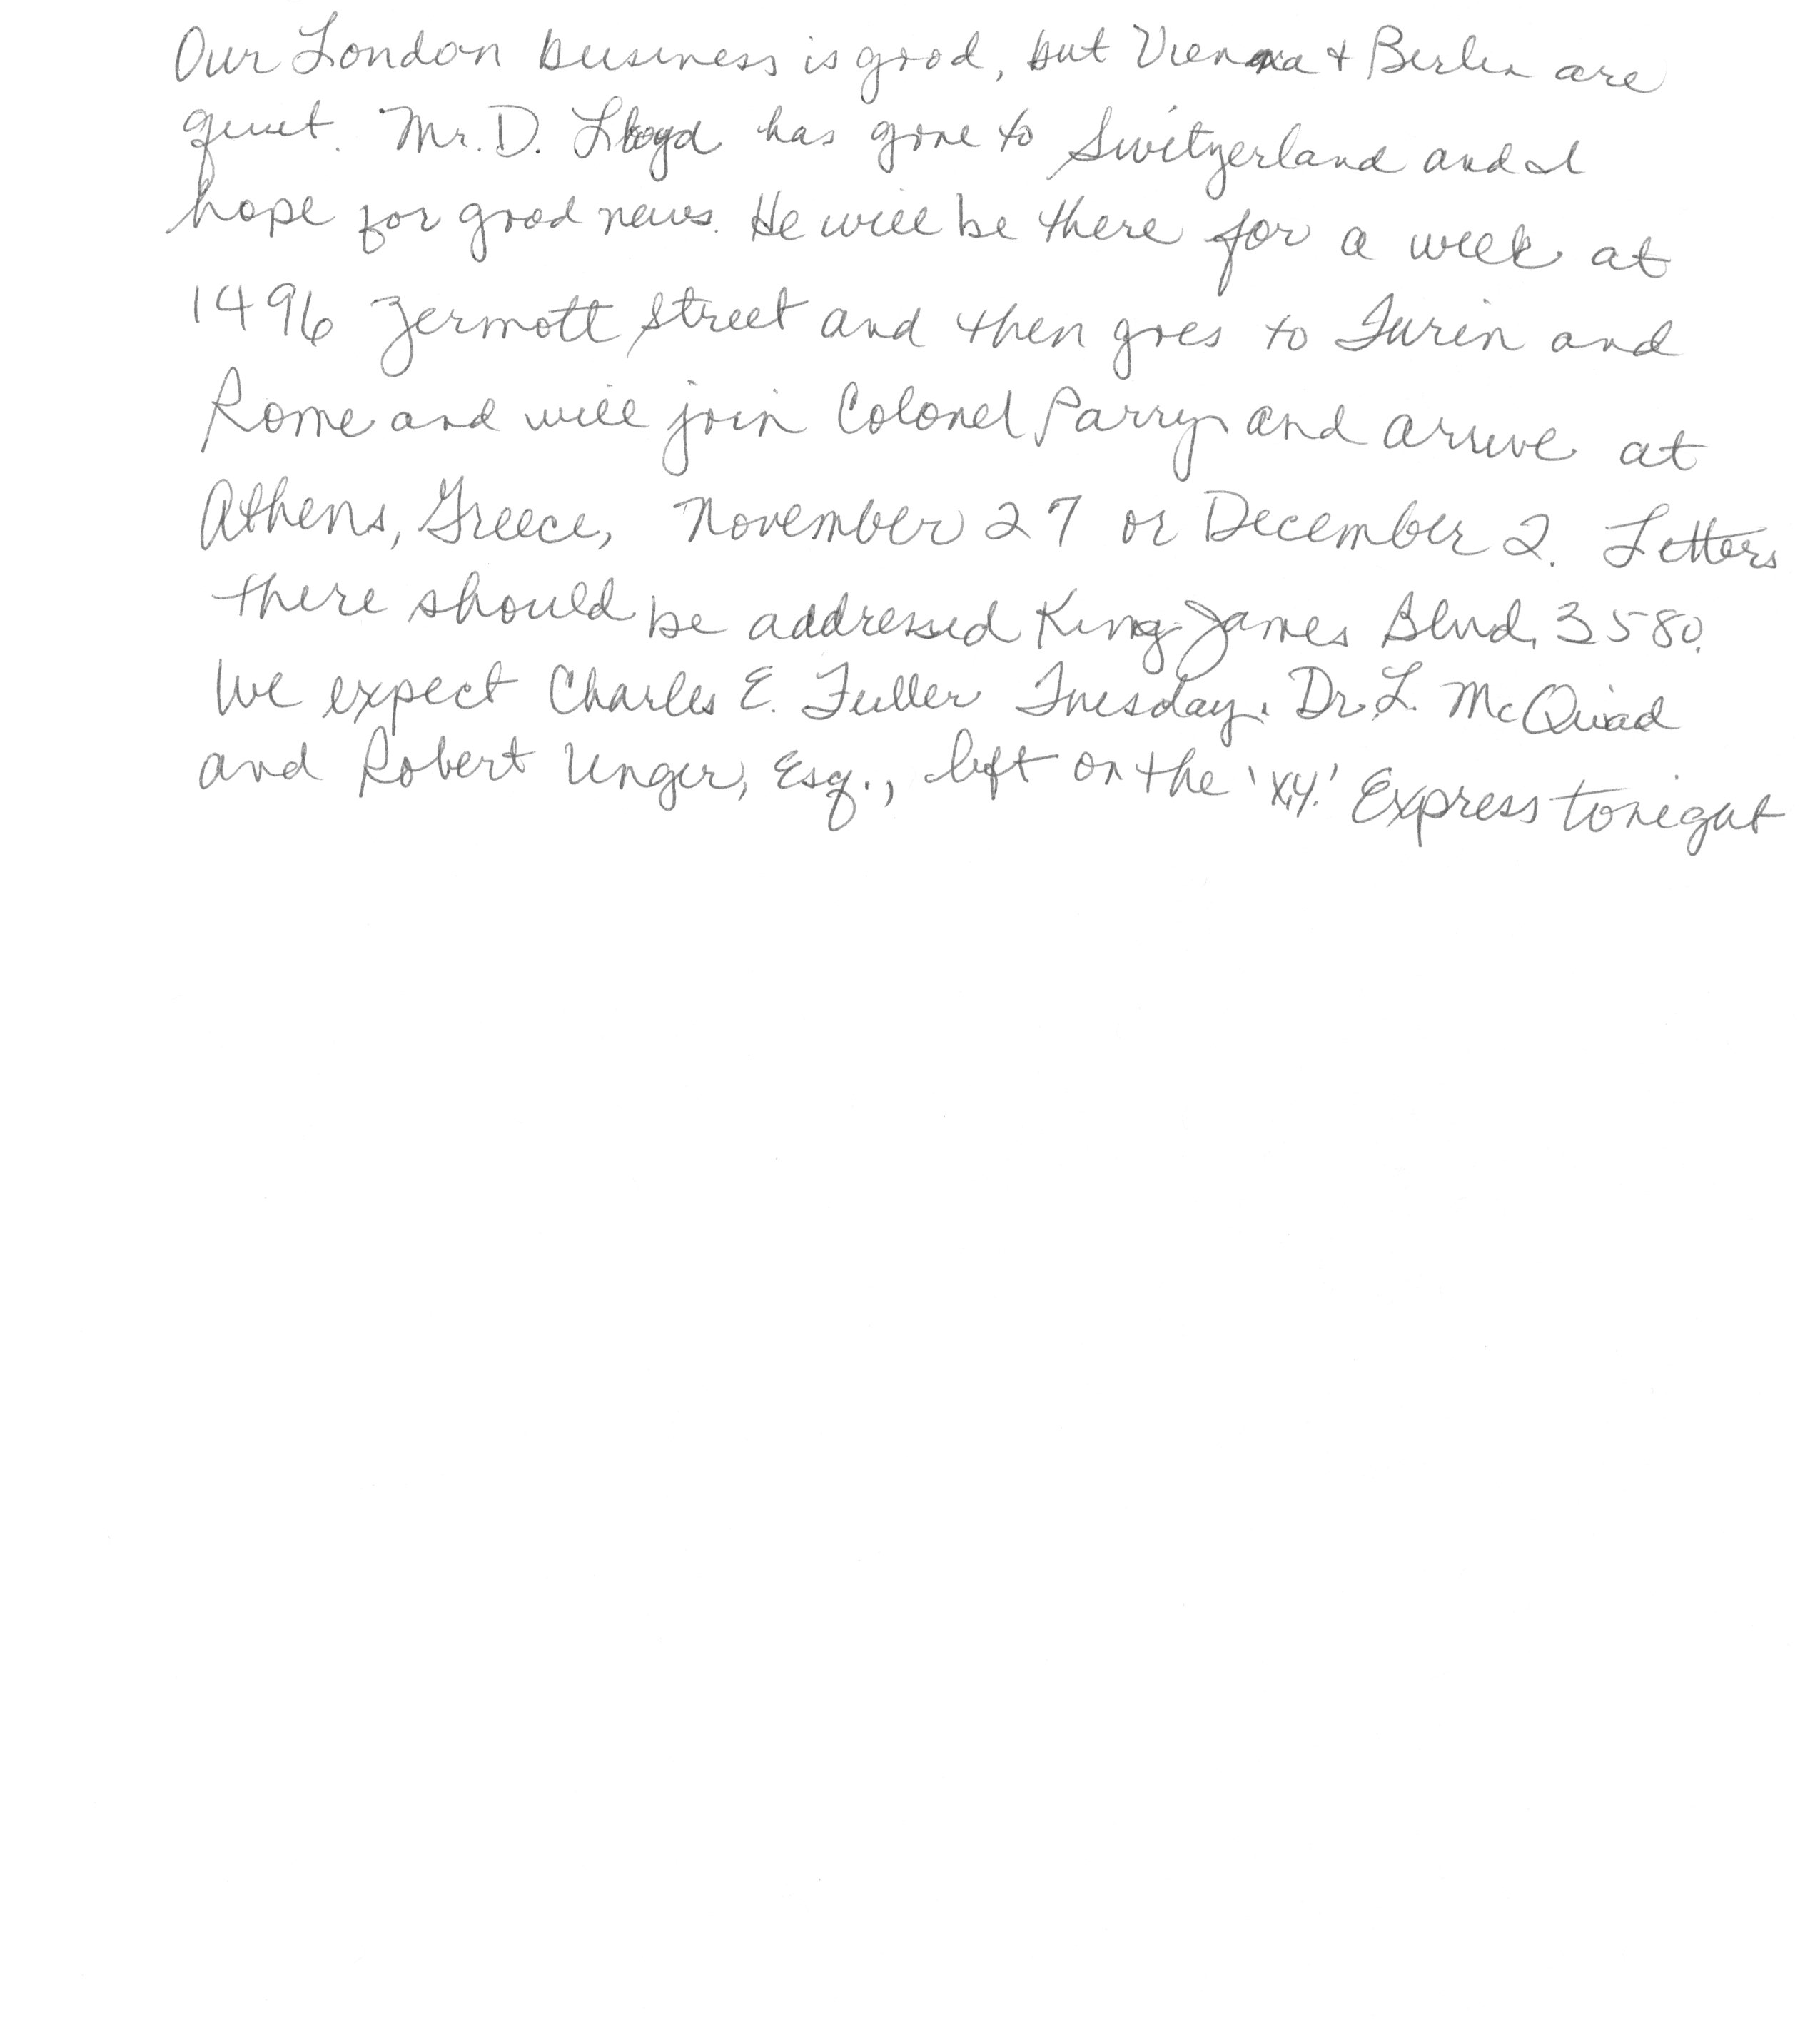 Our London business is good, but Vienna + Berlin are
quiet. Mr. D. Lloyd has gone to Switzerland and I
hope for good news. He will be there for a week at
1496 Zermott Street and then goes to Turin and
Rome and will join Colonel Parry and arrive at
Athens, Greece, November 27 or December 2. Letters
there should be addressed King James Blvd. 3580.
We expect Charles E. Fuller Tuesday. Dr. L. McQuaid
and Robert Unger, Esq., left on the 'X.Y.' Express tonight